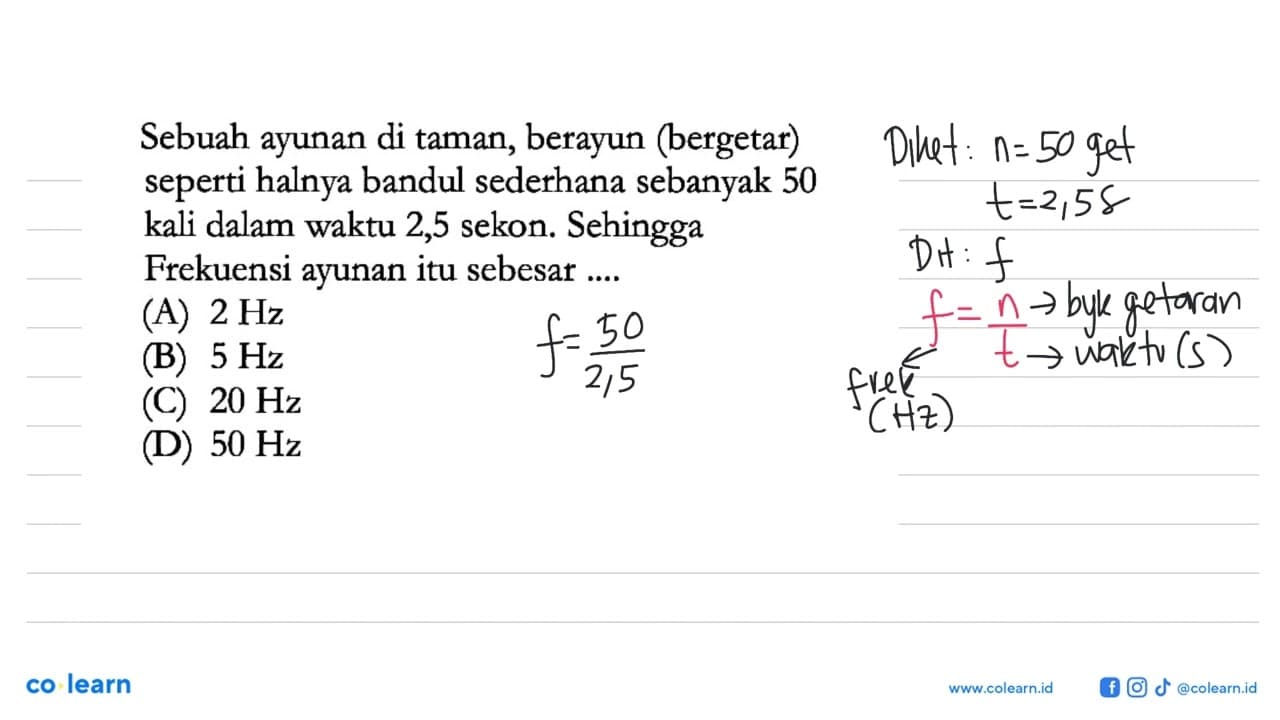 Sebuah ayunan di taman, berayun (bergetar)
seperti halnya bandul sederhana sebanyak 50
kali dalam waktu 2,5 sekon. Sehingga
Frekuensi ayunan itu sebesar ....
(A) 2 Hz
(B) 5 Hz
(C) 20 Hz
(D) 50 Hz
f = 50
2,5
Diket: n = 50 get
t = 2,5 s
DH: f
f = n → byk getaran
t → waktu (s)
frek
(Hz)
co learn
www.colearn.id
@colearn.id